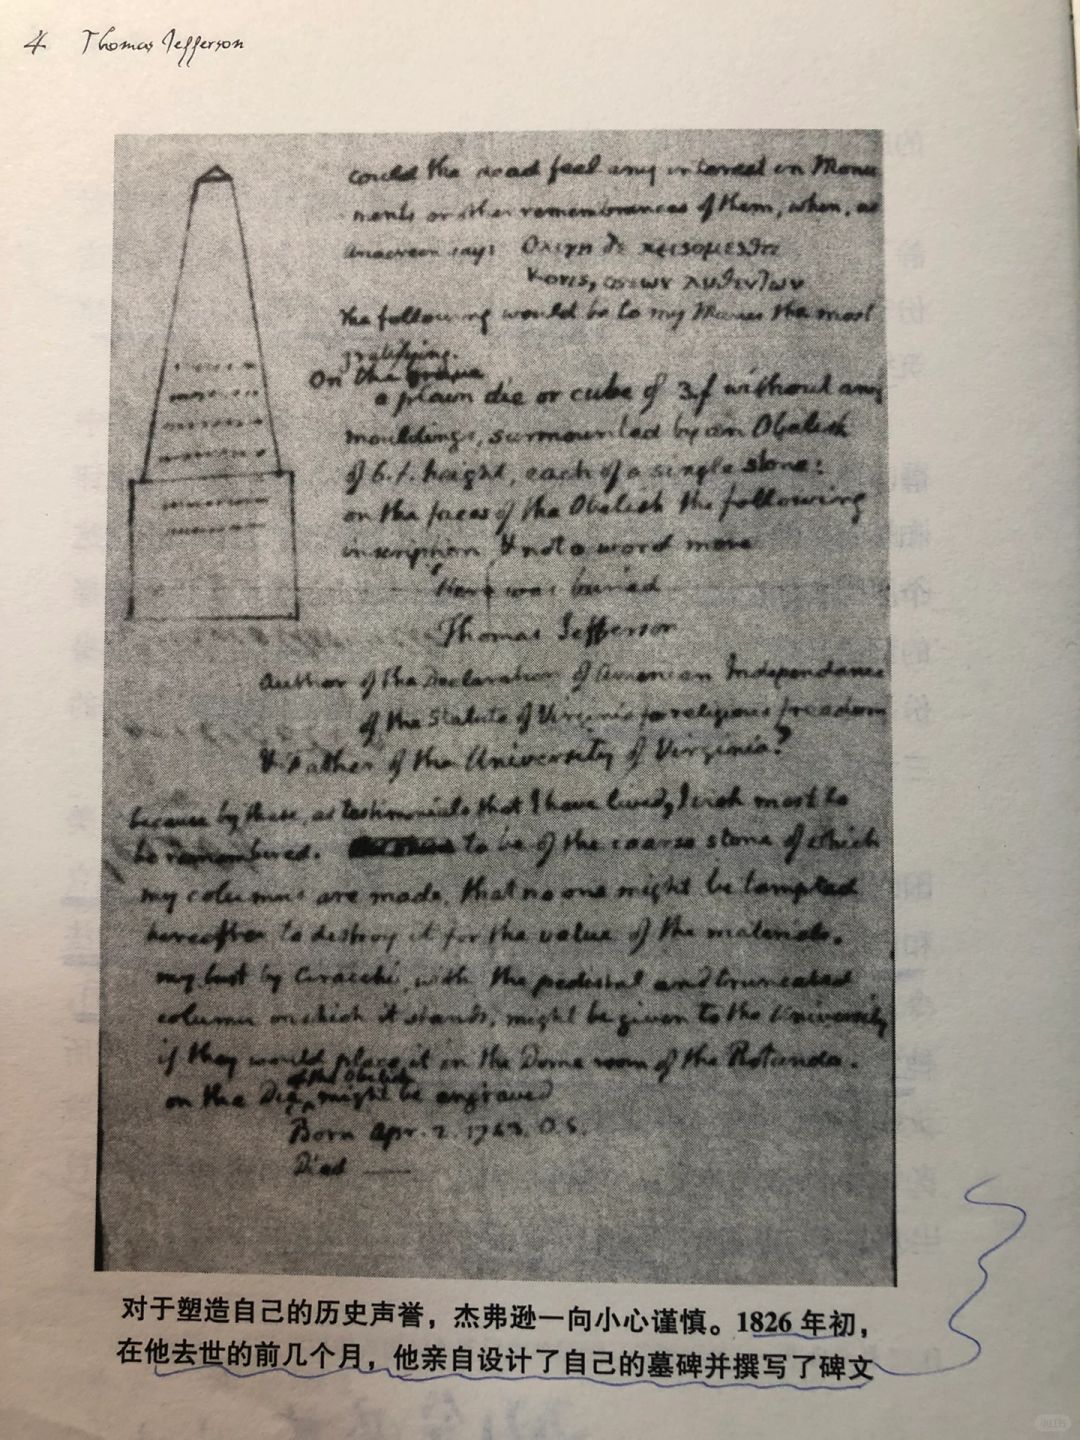 4 Thomas Jefferson
could the dead feel any interest in Monu
ments or other remembrances of them, when, as
Anacreon says: Ολιγη δε κεισομεσθα
Κονις, οστεων λυθεντων
the following would be to my Manes the most
gratifying.
On the grave
a plain die or cube of 3.f without any
mouldings, surmounted by an Obelisk
of 6.f. height, each of a single stone:
on the faces of the Obelisk the following
inscription, & not a word more
Here was buried
Thomas Jefferson
Author of the Declaration of American Independance
of the Statute of Virginia for religious freedom
& Father of the University of Virginia.
because by these, as testimonials that I have lived, I wish most to
be remembered. to be of the coarse stone of which
my columns are made, that no one might be tempted
hereafter to destroy it for the value of the materials.
my bust by Ciracchi, with the pedestal and truncated
column on which it stands, might be given to the University
if they would place it in the Dome room of the Rotunda.
of the Obelisk
on the Die might be engraved
Born Apr. 2. 1743. O.S.
Died
对于塑造自己的历史声誉，杰弗逊一向小心谨慎。1826 年初，
在他去世的前几个月，他亲自设计了自己的墓碑并撰写了碑文
小红书